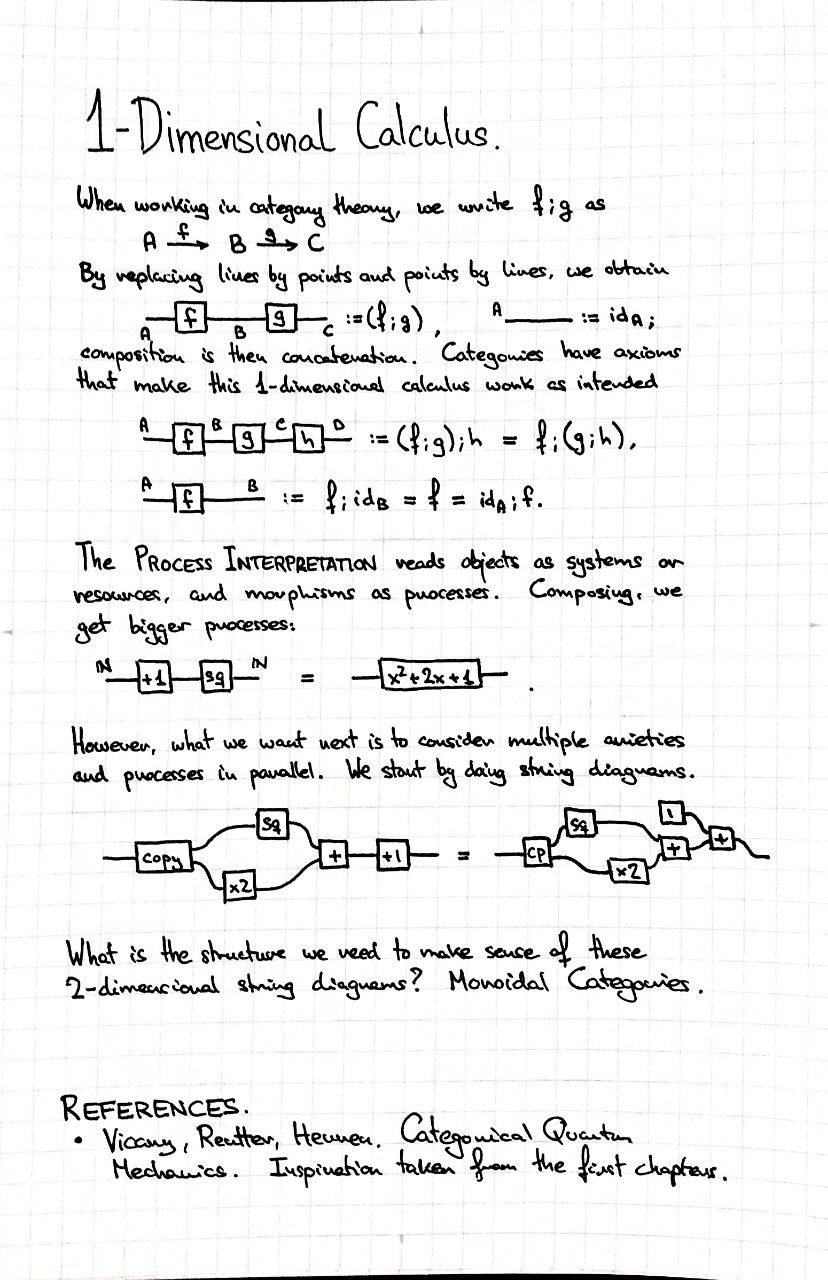 1-Dimensional Calculus.
When working in category theory, we write f;g as
A f→ B g→ C
By replacing lines by points and points by lines, we obtain
A f B g C :=(f;g), A := id_A;
composition is then concatenation. Categories have axioms
that make this 1-dimensional calculus work as intended
A f B g C h D := (f;g);h = f;(g;h).
A f B := f;id_B = f = id_A;f.
The PROCESS INTERPRETATION reads objects as systems or
resources, and morphisms as processes. Composing, we
get bigger processes:
ℕ +1 sq ℕ = x²+2x+1 .
However, what we want next is to consider multiple
and processes in parallel. We start by string diagrams.
copy sq x2 + +1 = cp sq x2 1 + +
What is the structure we need to make sense of these
2-dimensional string diagrams? Monoidal Categories.
REFERENCES.
• Vicary, Reutter, Heunen. Categorical Quantum
Mechanics. Inspiration taken from the first chapters.